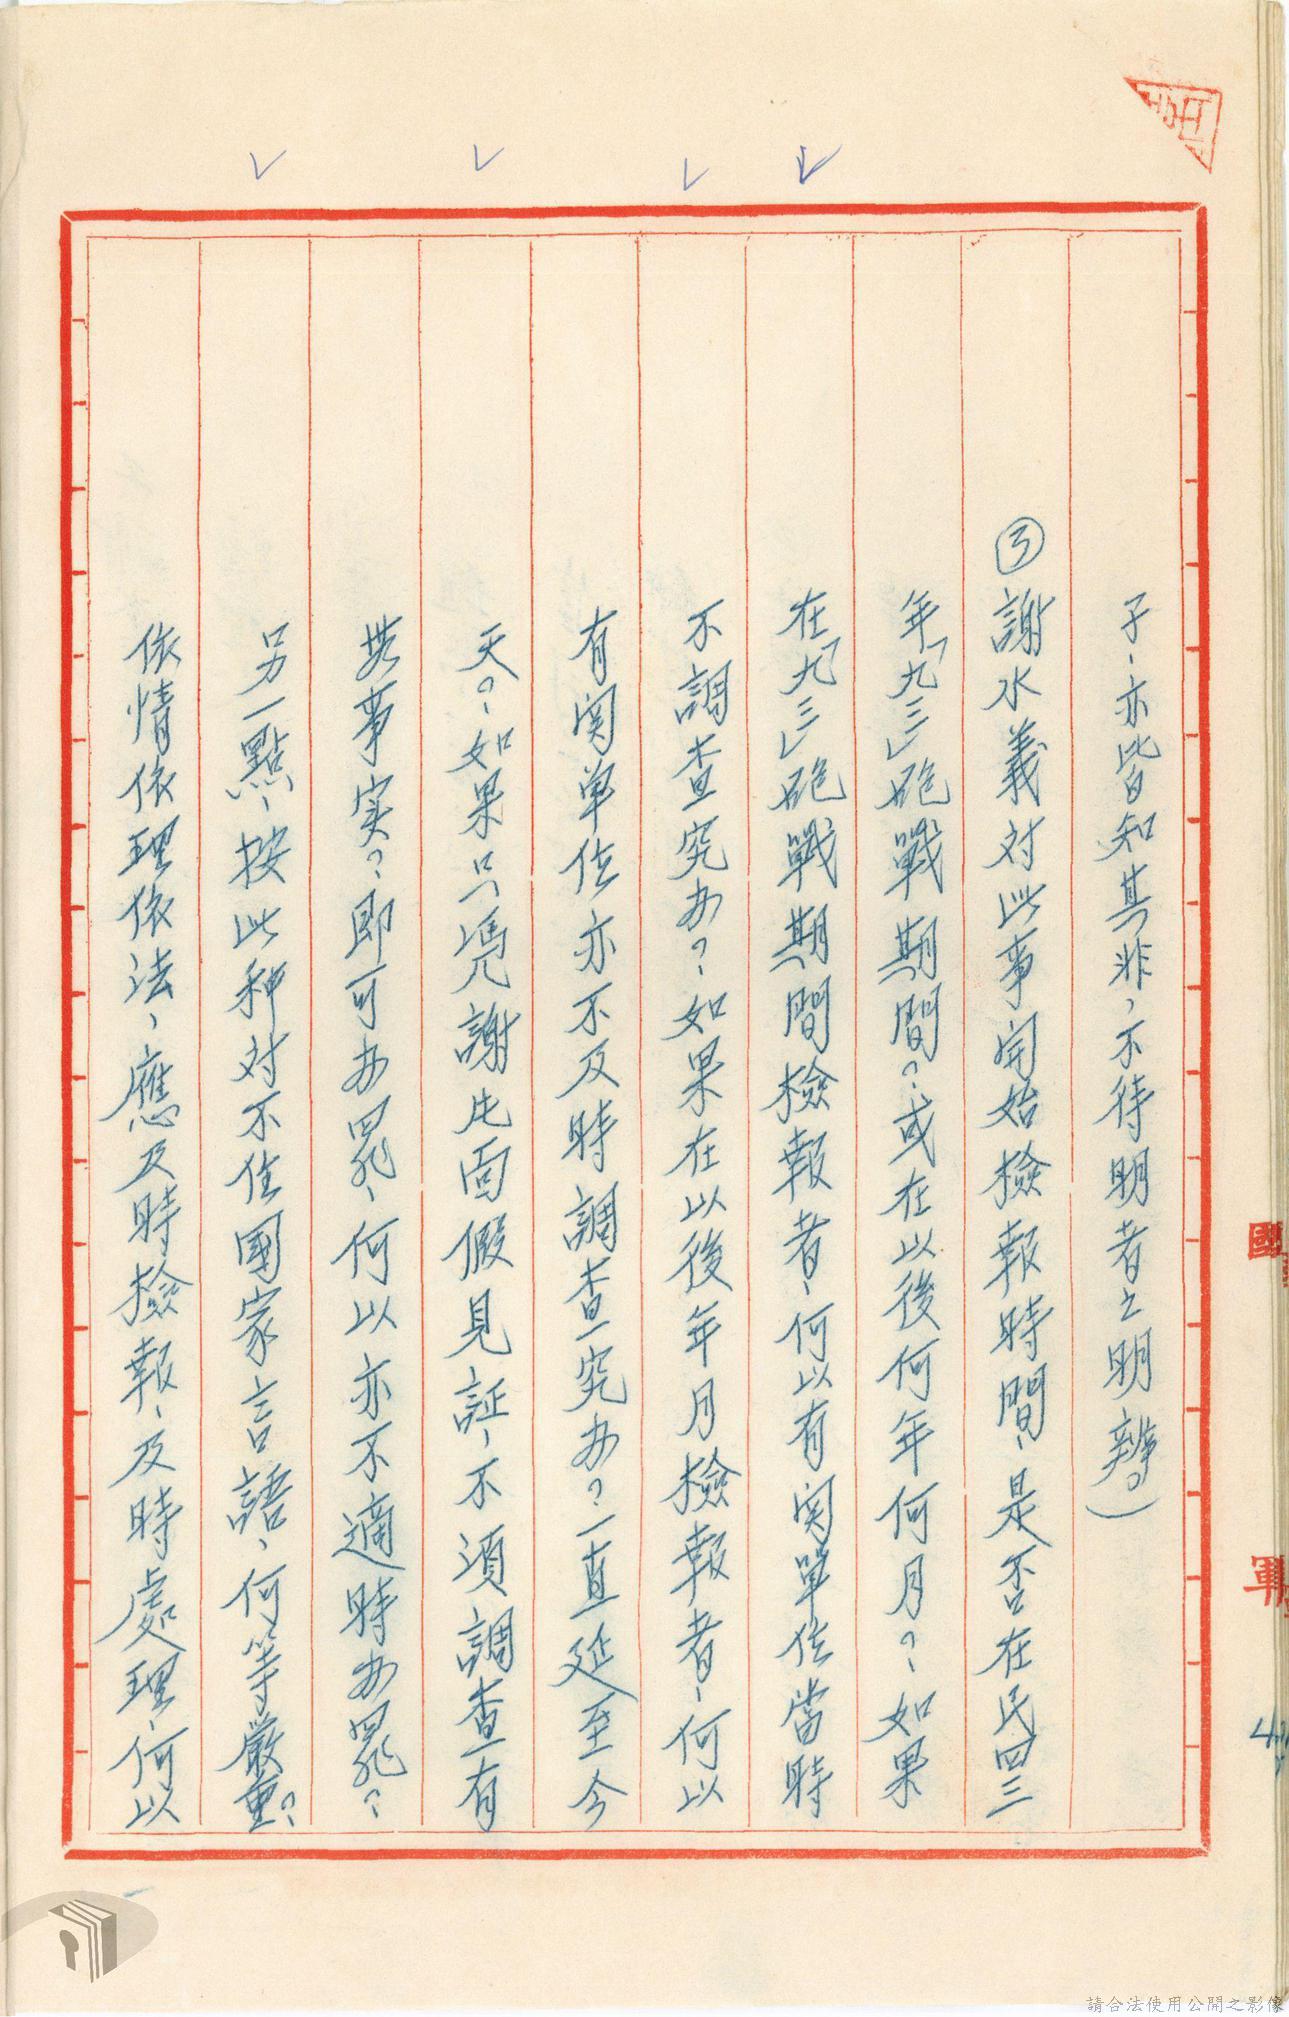 子、亦皆知其非，不待明者之明辨。）
③謝水義对此事開始檢報時間、是否在民四三
年「九、三」砲戰期間？或在以後何年何月？、如果
在「九、三」砲戰期間檢報者、何以有関單位當時
不調查究办？、如果在以後年月檢報者、何以
有関單位亦不及時調查究办？一直延至今
天？、如果只憑謝片面假見証、不須調查有
無事实？、即可办罪、何以亦不適時办罪？
另一點、按此种对不住國家言語、何等嚴重？
依情依理依法，應及時檢報、及時處理、何以
國
軍
請合法使用公開之影像